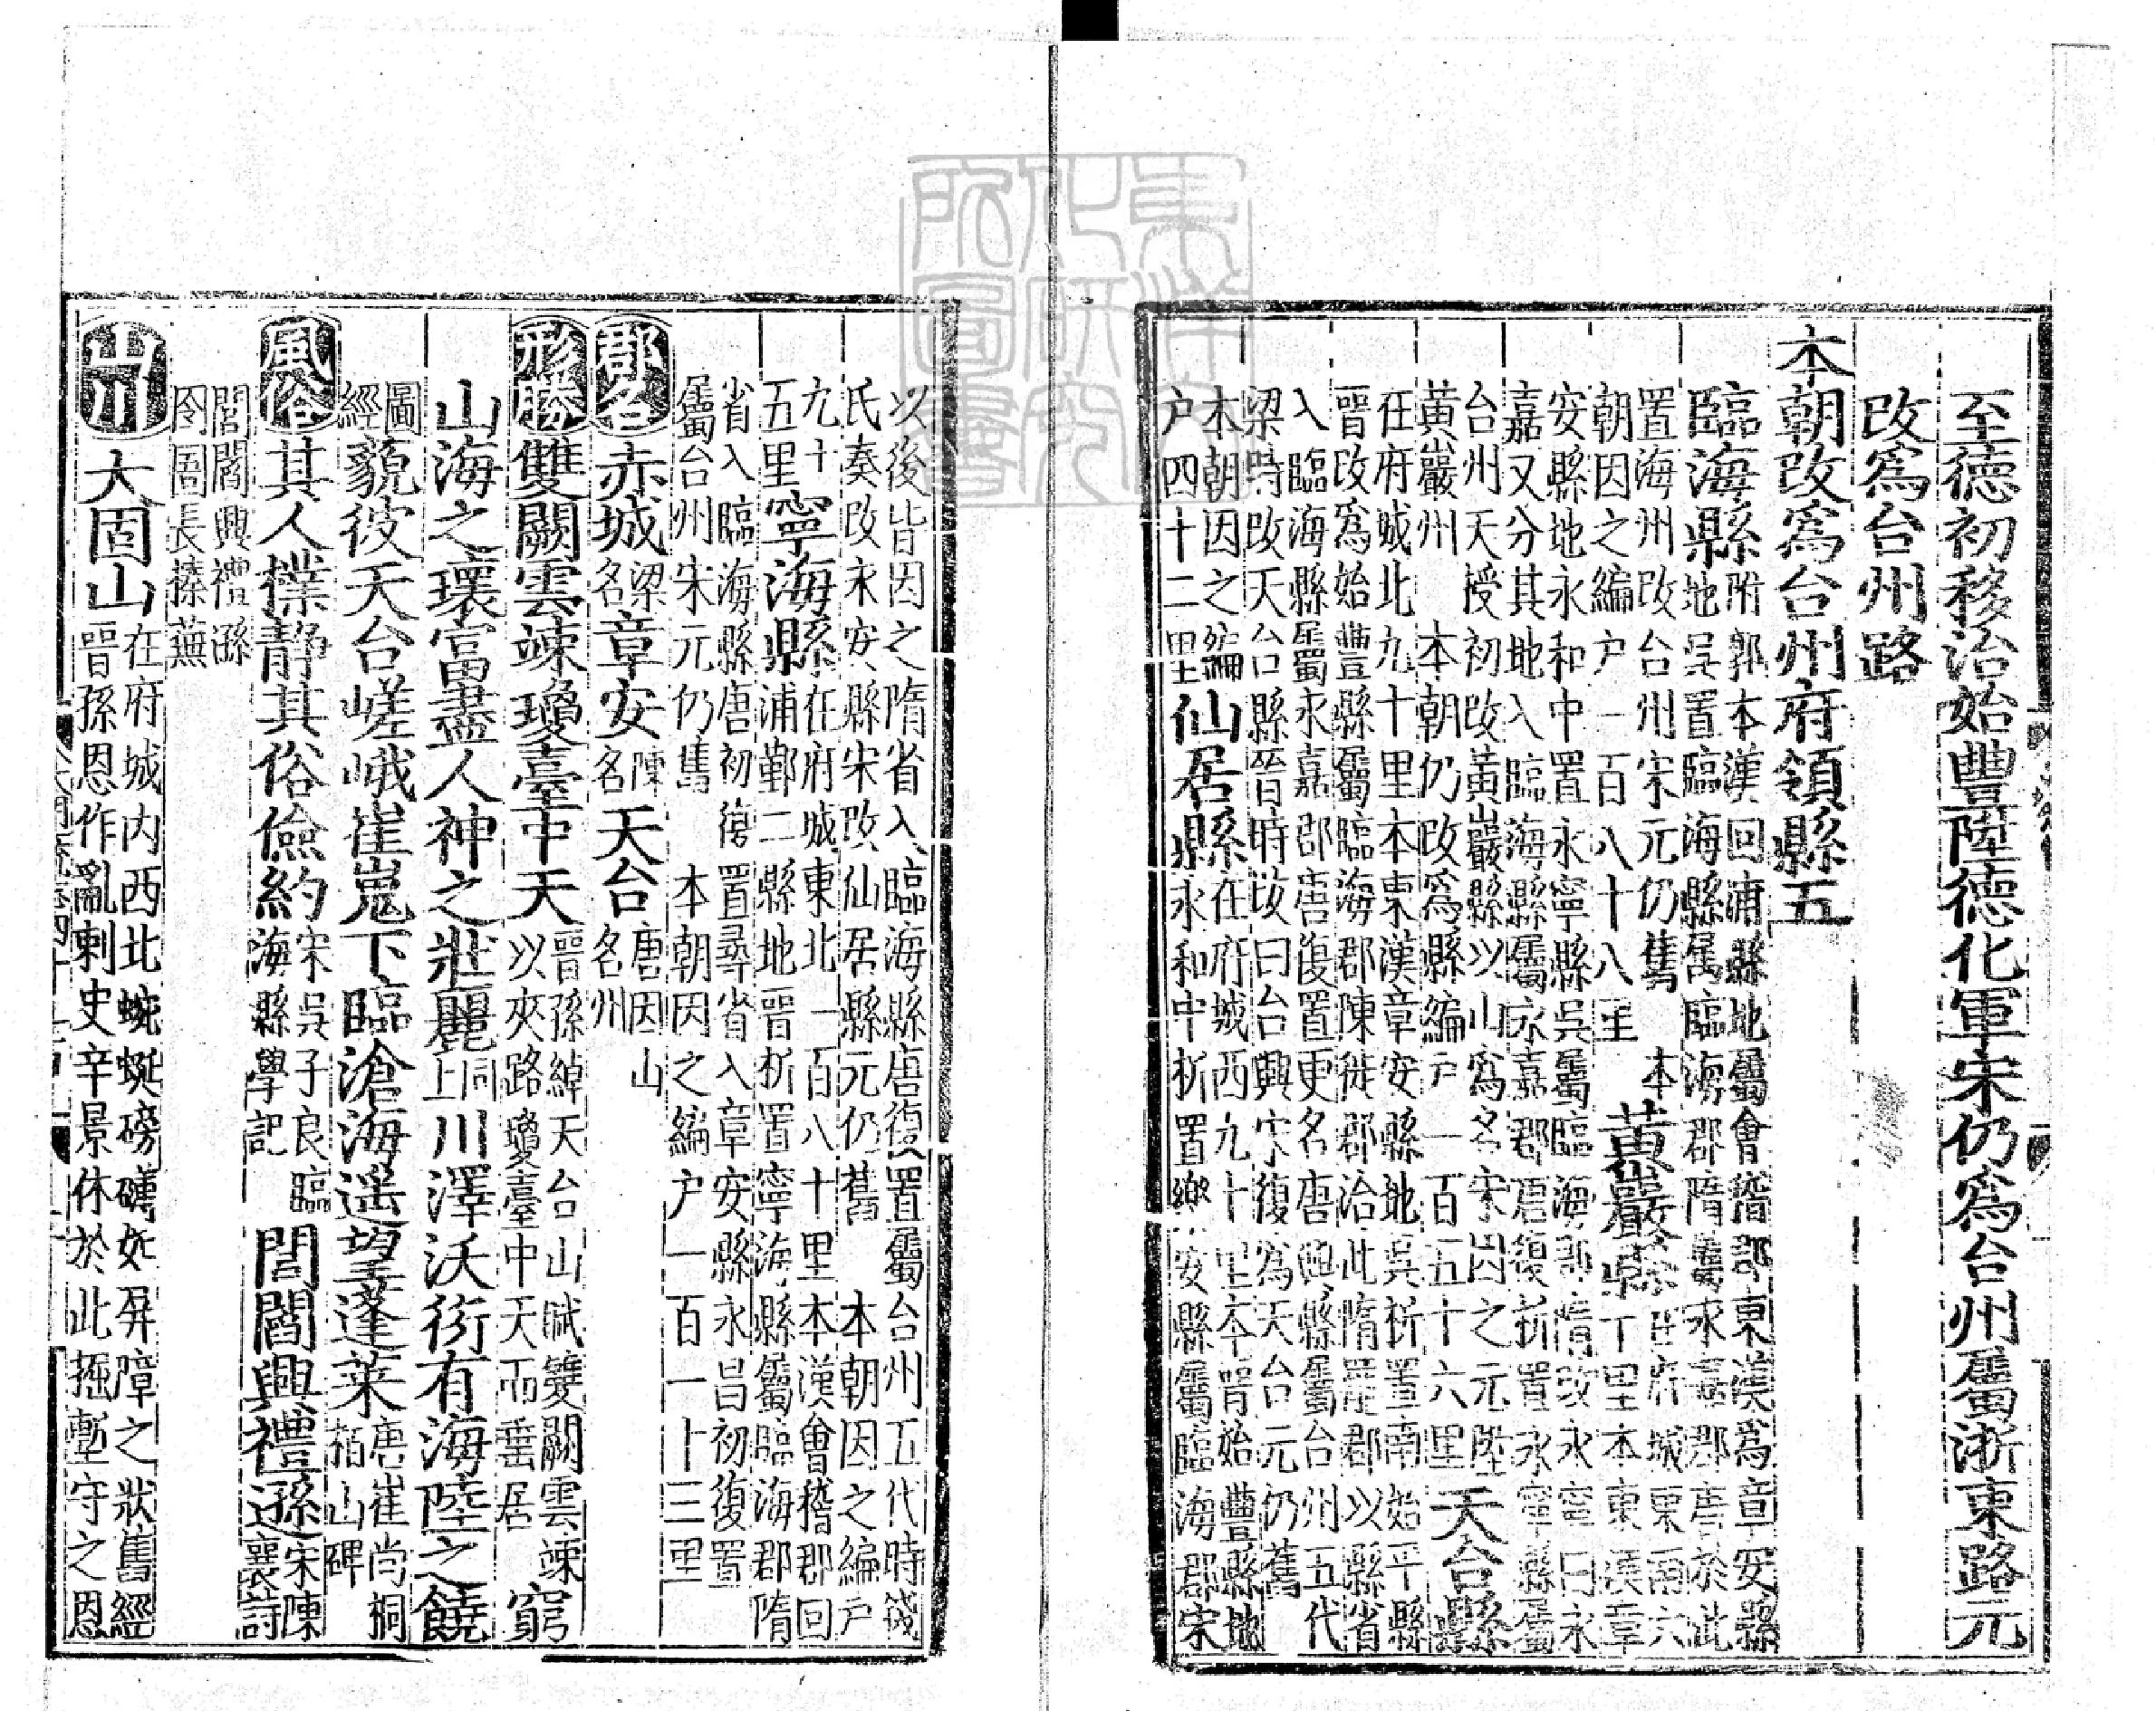 至德初移治始豐陞德化軍宋仍爲台州屬浙東路元
改爲台州路
本朝改爲台州府領縣五
臨海縣附郭本漢回浦縣地屬會稽郡東漢爲章安縣
地吳置臨海縣屬臨海郡隋屬永嘉郡唐於此
置海州改台州宋元仍舊 本
朝因之編户一百八十八里
黃巖縣在府城東南六
十里本東漢章
安縣地永和中置永寧縣吳屬臨海郡隋改永寧曰永
嘉又分其地入臨海縣屬永嘉郡唐復析置永寧縣屬
台州天授初改黃巖縣以山爲名宋因之元陞
黃巖州 本朝仍改爲縣編户一百五十六里
天台縣
在府城北九十里本東漢章安縣地吳析置南始平縣
晉改爲始豐縣屬臨海郡陳徙郡治此隋罷郡以縣省
入臨海縣屬永嘉郡唐復置更名唐興縣屬台州五代
梁時改天台縣晉時改曰台興宋復爲天台元仍舊
本朝因之編
户四十二里
仙居縣
在府城西九十里本晉始豐縣地
永和中析置樂安縣屬臨海郡宋
以後皆因之隋省入臨海縣唐復置屬台州五代時錢
氏奏改永安縣宋改仙居縣元仍舊 本朝因之編户
九十
五里
寧海縣
在府城東北一百八十里本漢會稽郡回
浦鄞二縣地晉析置寧海縣屬臨海郡隋
省入臨海縣唐初復置尋省入章安縣永昌初復置
屬台州宋元仍舊 本朝因之編户一百一十三里
郡名赤城梁名章安陳名天台唐因山名州
形勝雙闕雲竦瓊臺中天晉孫綽天台山賦雙闕雲竦以夾路瓊臺中天而垂居窮
山海之瓌富盡人神之壯麗同上川澤沃衍有海陸之饒
圖經藐彼天台嵯峨崔嵬下臨滄海遥望蓬萊唐崔尚桐栢山碑
風俗其人樸靜其俗儉約宋吳子良臨海縣學記閭閻興禮遜宋陳襄詩
閭閻興禮遜
囹圄長蓁蕪
山川大固山在府城内西北蜿蜒磅礴如屏障之狀舊經
晉孫恩作亂刺史辛景休於此掘塹守之恩